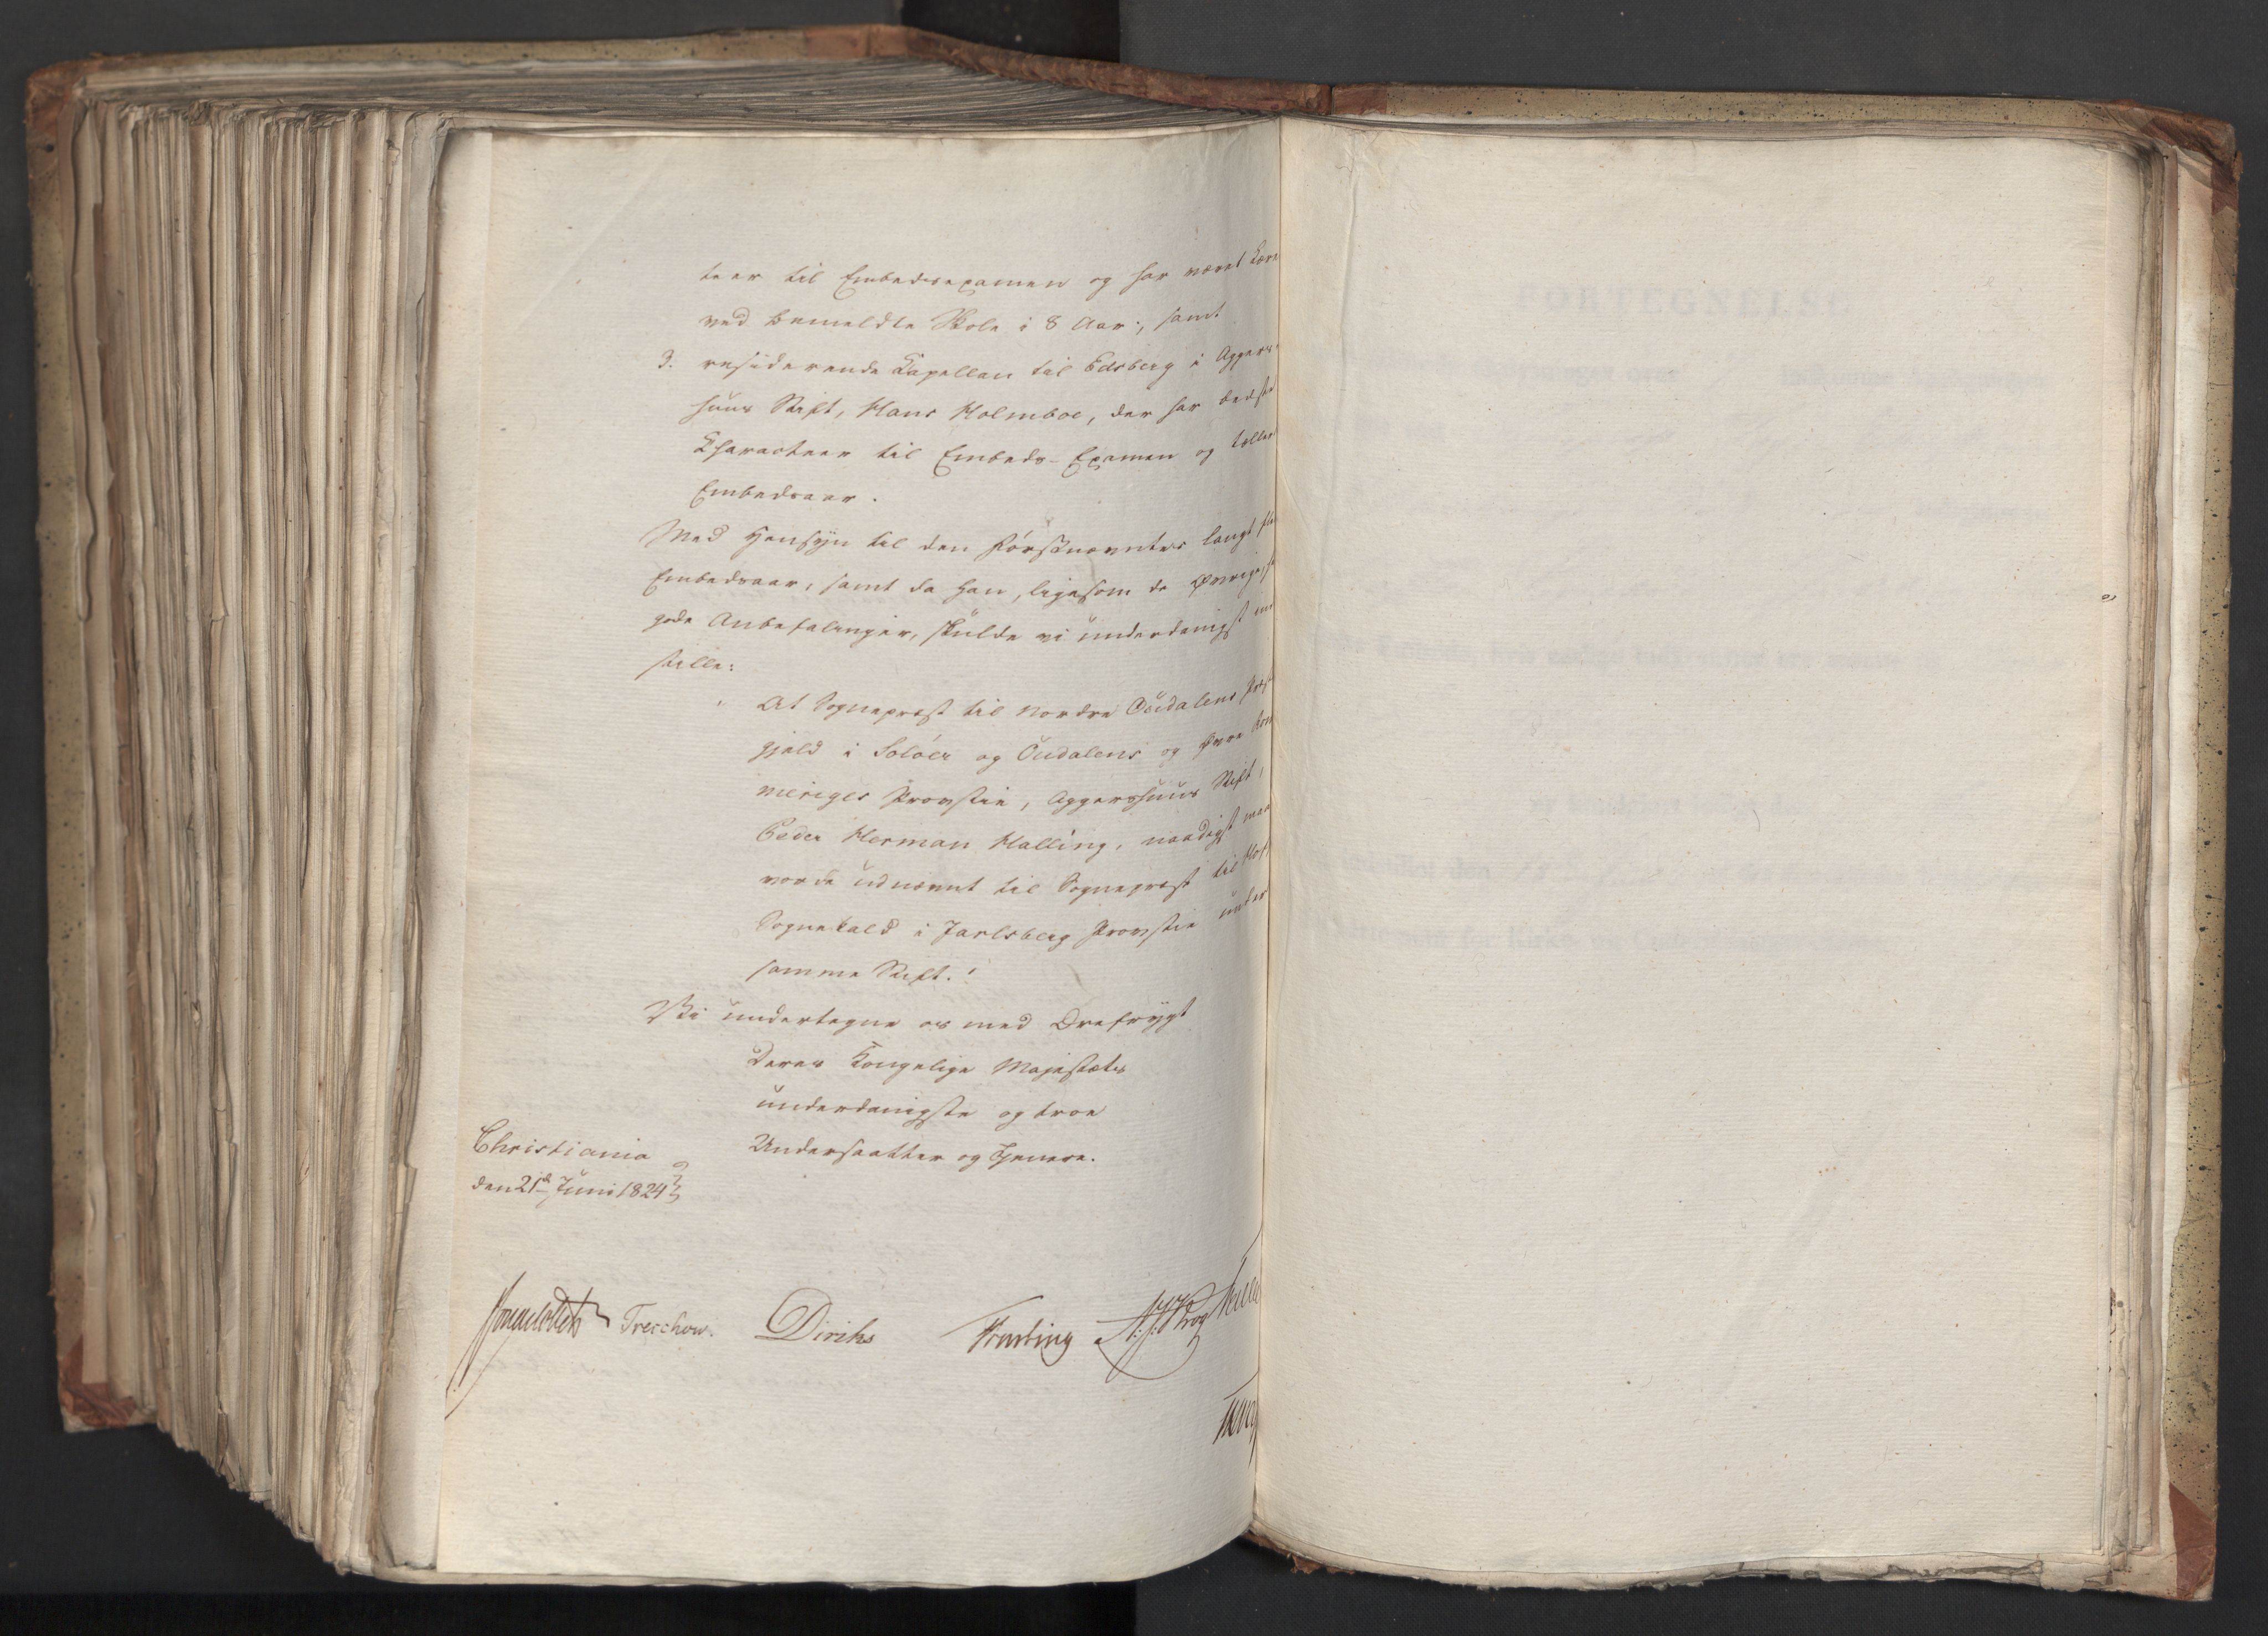 teer til Embedsexamen og har været Lær
ved bemeldte Skole i 8 Aar; samt
3. residerende Kapellan til Edsberg i Aggers
huus Stift, Hans Holmboe, der har bedste
Charakteer til Embeds-Examen og tæller
Embedsaar.
Med Hensyn til den Førstnævntes langt fle
Embedsaar, samt da han, ligesom de Øvrige, h
gode Anbefalinger, skulde vi underdanigst ind
stille:
At Sognepræst til Nordre Oudalens Præst
gjeld i Soløer og Oudalens og Øvre Rom
meriges Provstie, Aggershuus Stift,
Peder Herman Halling, naadigst maa
vorde udnævnt til Sognepræst til Hof
Sognekald i Jarlsberg Provstie under
samme Stift.!
Vi undertegne os med Ærefrygt
Deres Kongelige Majestæts
underdanigste og troe
Undersaatter og Tjenere.
Christiania
den 21de Juni 1824
Treschow. Diriks Krog
FORTEGNELSE